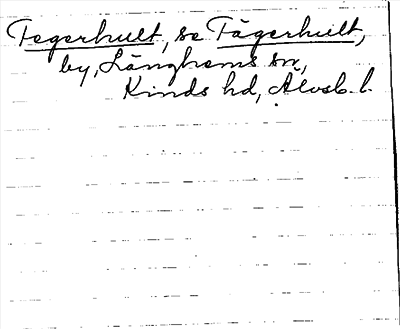 Tegerhult, se Tägerhult,
by, Länghems sn,
Kinds hd, Älvsb. l.